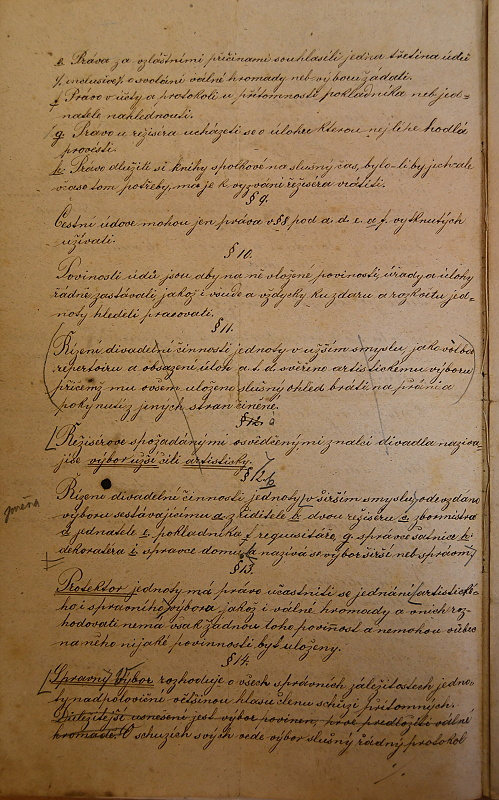 e. Práva za ozláštními příčinami souhlasili jedna třetina údů
(inclusive) o svolání valné hromady neb výboru žádati.
f. Právo v účty a protokoly u přítomnosti pokladníka neb jed-
natele nahlédnouti.
g. Právo u režiséra ucházeti se o úlohu kterou nejlépe hodlá
provésti.
h. Právo dlužiti si knihy spolkové na slušný čas, bylo-li by jich ale
v čase tom potřeby, má je k vyzvání režiséra vrátiti.
§ 9.
Čestní údové mohou jen práva v §8 pod a. d. e. a f. vytknutých
užívati.
§ 10.
Povinností údů jsou aby na ně vložené povinosti, úřady a úlohy
řádně zastávali, jakož i všude a vždycky ku zdaru a rozkvětu jed-
noty hleděli pracovati.
§ 11.
Řízení divadelní činnosti jednoty v užším smyslu, jako volba
repertoiru a obsazení úloh a t. d. svěřeno artistickému výboru
přičemž mu ovšem uloženo slušný ohled bráti na přání a
pokynutí z jiných stran činěné.
§ 12. a
Režisérové s požádanými osvědčenými znalci divadla nazýva-
jí se výbor užší čili artistický.
§ 12. b
Řízení divadelní činnosti jednoty v širším smyslu, odevzdáno
výboru sestávajícímu a. z ředitele b. dvou režiserů c. zbormistra
d. jednatele e. pokladníka f. requisitáře, g. správce šatnice h.
dekoratéra i. správce domu, a nazývá se výbor širší neb správní
§ 13.
Protektor jednoty má právo účastniti se jednání artistické-
ho i správního výboru jakož i valné hromady a v nich roz-
hodovati nemá však žádnou toho povinost a nemohou vůbec
na něho nijaké povinnosti býť uloženy.
§ 14.
Správný výbor rozhoduje o všech správních záležitostech jedno-
ty nadpoloviční většinou hlasů členů schůzi přítomných.
Důležitější usnešení jest výbor povinen, prvé předložiti valné
hromadě. O schůzích svých vede výbor slušný řádný protokol